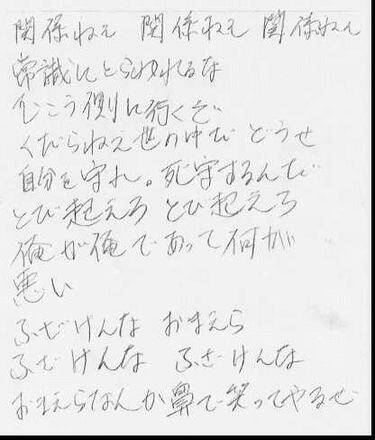 関係ねえ 関係ねえ 関係ねえ
常識にとらわれるな
むこう側に行くぞ
くだらねえ世の中だ どうせ
自分を守れ。死守するんだ
とび起えろ とび起えろ
俺が俺であって何が
悪い
ふざけんな おまえら
ふざけんな ふざけんな
おまえらなんか鼻で笑ってやるぜ